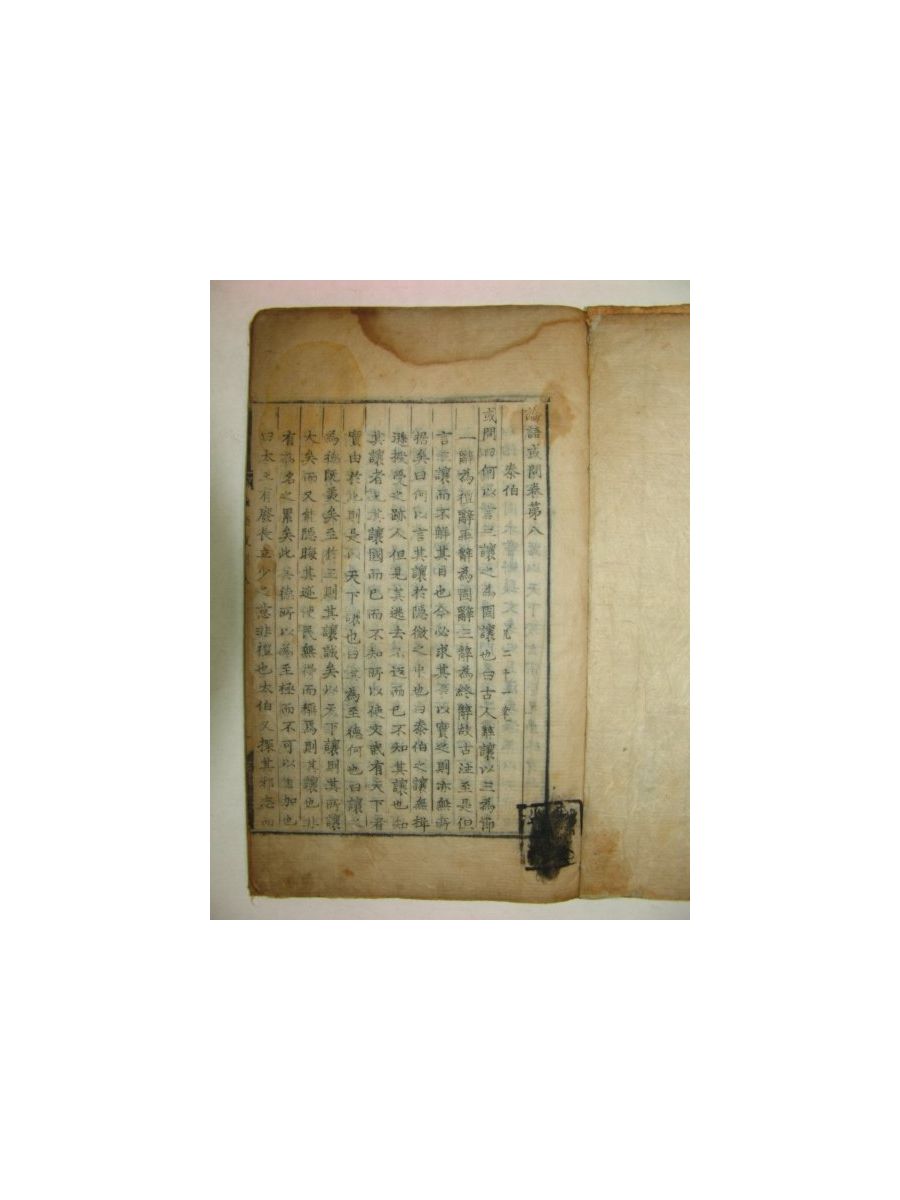 論語或問卷第八
泰伯 凡二十章
或問何以言三讓之為固讓也曰古人辭讓以三為節
一辭為禮辭再辭為固辭三辭為終辭故古注至是但
言三讓而不解其目也今必求其事以實之則亦無所
據矣曰何以言其讓於隱微之中也曰泰伯之讓無揖
遜授受之跡人但見其逃去不返而已不知其讓也知
其讓者見其讓國而已而不知所以使文武有天下者
實由於此則是以天下讓也曰其為至德何也曰讓之
為德既美矣至於三則其讓誠矣以天下讓則其所讓
大矣而又能隱晦其迹使民無得而稱焉則其讓也非
有為名之累矣此其德所以為至極而不可以有加也
曰太王有廢長立少之意非禮也太伯又探其邪志而